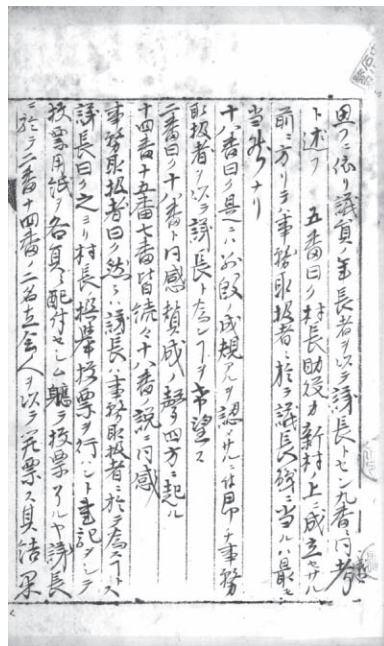 思フニ依リ議員ノ年長者ヲ以テ議長トセン九番ハ同考
ト述フ　五番曰ク村長助役カ新村上ニ成立セサル
前ニ方リテハ事務取扱者ニ於テ議長職ニ当ルハ最モ
当然ナリ
十八番曰ク是ニハ別段ノ成規アルヲ認メサルニ付即チ事務
取扱者ヲ以テ議長ト為シ ヲ希望ス
二番曰ク十八番ト同感賛成ノ声四方ニ起ル
十四番十五番七番皆続々十八番ノ説ニ同感
事務取扱者曰ク然ラハ議長ハ事務取扱者ニ於テ為ス ス
議長曰ク之ヨリ村長撰挙投票ヲ行ハント書記ヲシテ
投票用紙ヲ各員ニ配付セシム軈テ投票アルヤ議長
ニ於テ二番十四番ノ二名立会人ヲ以テ開票ス其結果